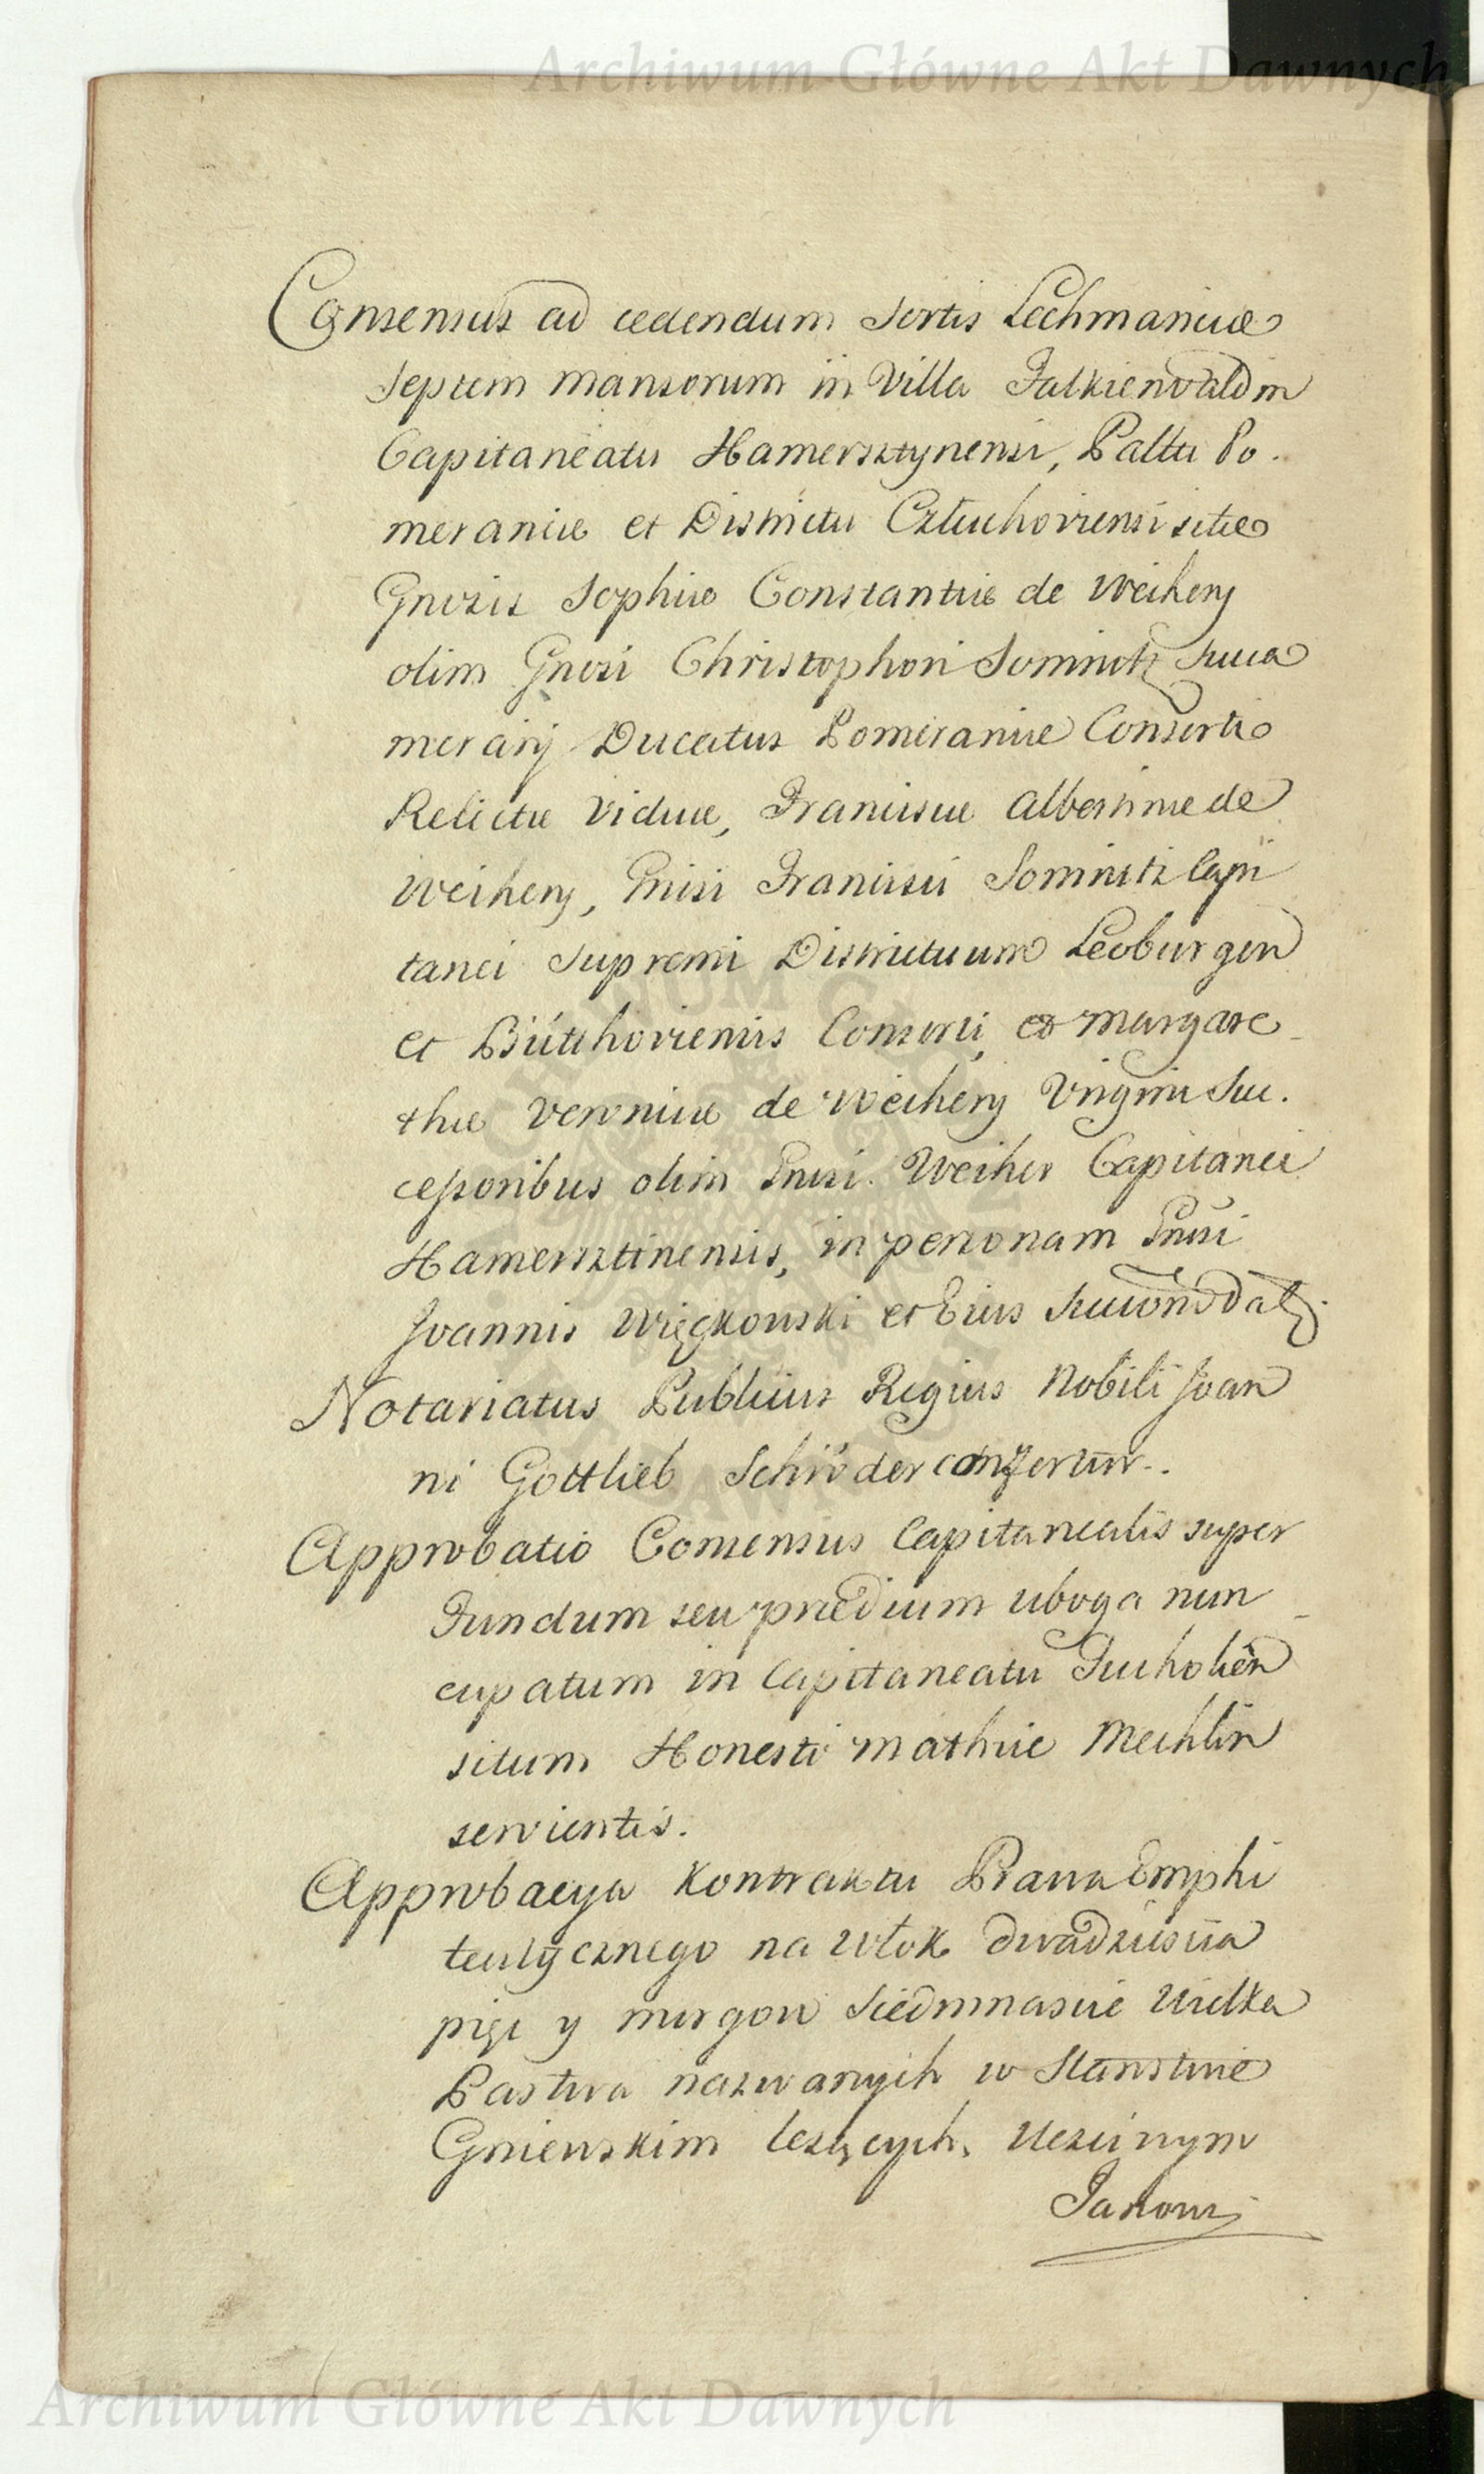 Archiwum Główne Akt Dawnych
Consensus ad cedendum Sortis Lechmaniæ
Septem mansorum in Villa Falkienwaldm
Capitaneatu Hamersztynensi, Palttu Po.
meraniæ et Districtu Człuchoviensi sitæ
Gnosis Sophiæ Constantiæ de Weihery
olim Gnosi Christophori Somnitz Succa
merarij Ducatus Pomeraniæ Consorti
Relictæ Viduæ, Franciscæ Albertinæ de
Weihery, Gnisi Francisci Somnitz Capi
tanei Supremi Districtuum Leoburgen
et Bütthoviensis Consorti, et Margare
thæ Veronicæ de Weihery Virgini Suc.
cessoribus olim Gnisi. Weiher Capitanei
Hamersztinensis, in personam Gnisi
Joannis Więckowski et Eius Succōnis datz.
Notariatus Publicus Regius Nobili Joan
ni Gottlieb Schröder confertur..
Approbatio Consensus Capitanealis super
Fundum seu prædium uboga nun
cupatum in Capitaneatu Tucholien
situm Honesti Mathiæ Mechlin
servientis.
Approbacya Kontraktu Prawa Emphi
teutycznego na włok dwadziescia
pięć y morgow Siedmnascie Wielka
Pastwa nazwanych w Starostwie
Gniewskim leżących, Uczciwym
Janowi
Archiwum Główne Akt Dawnych